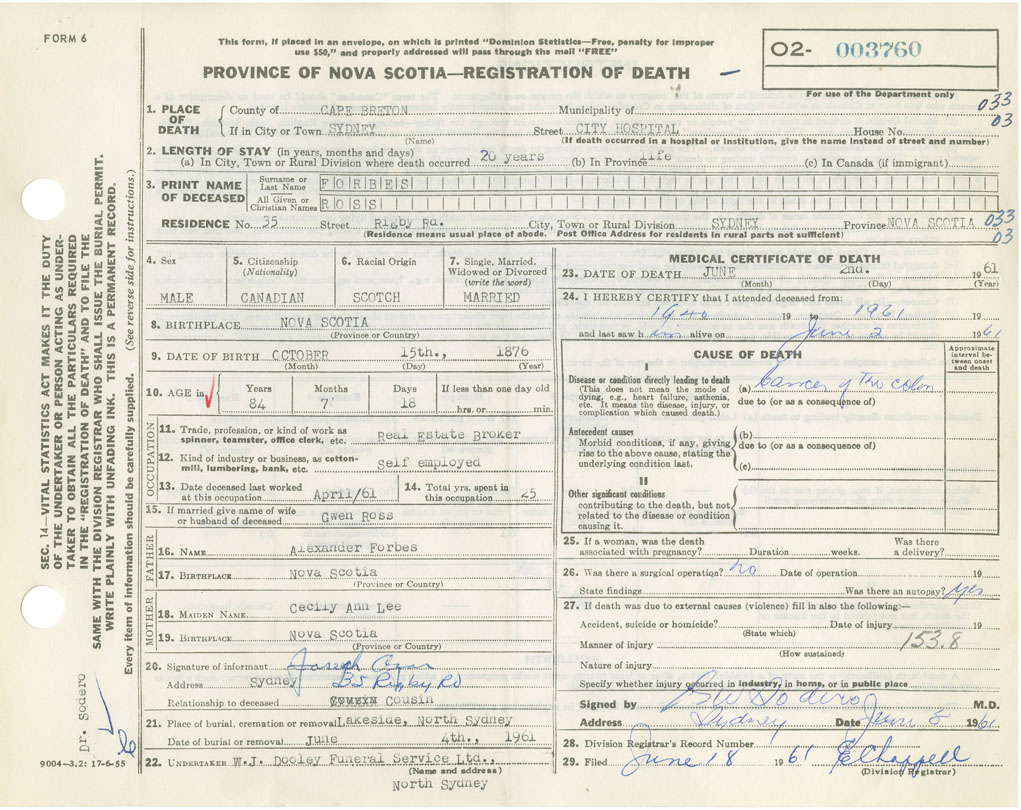 FORM 6
This form, if placed in an envelope, on which is printed "Dominion Statistics—Free, penalty for improper
use $50," and properly addressed will pass through the mail "FREE"
PROVINCE OF NOVA SCOTIA—REGISTRATION OF DEATH
02- 003760
For use of the Department only
1. PLACE OF DEATH
County of CAPE BRETON Municipality of 033
If in City or Town SYDNEY Street CITY HOSPITAL House No. 03
(Name) (If death occurred in a hospital or Institution, give the name instead of street and number)
2. LENGTH OF STAY (in years, months and days)
(a) In City, Town or Rural Division where death occurred 20 years (b) In Province life (c) In Canada (if immigrant)
3. PRINT NAME OF DECEASED
Surname or Last Name FORBES
All Given or Christian Names ROSS
RESIDENCE No. 35 Street Rigby Rd. City, Town or Rural Division SYDNEY Province NOVA SCOTIA 033
(Residence means usual place of abode. Post Office Address for residents in rural parts not sufficient) 03
4. Sex
MALE
5. Citizenship
(Nationality)
CANADIAN
6. Racial Origin
SCOTCH
7. Single, Married,
Widowed or Divorced
(write the word)
MARRIED
8. BIRTHPLACE NOVA SCOTIA
(Province or Country)
9. DATE OF BIRTH OCTOBER 15th., 1876
(Month) (Day) (Year)
10. AGE in
Years Months Days If less than one day old
84 7 18 hrs. or min.
OCCUPATION
11. Trade, profession, or kind of work as
spinner, teamster, office clerk, etc. Real Estate Broker
12. Kind of industry or business, as cotton-
mill, lumbering, bank, etc. Self employed
13. Date deceased last worked
at this occupation April/61
14. Total yrs. spent in
this occupation 25
15. If married give name of wife
or husband of deceased Gwen Ross
FATHER
16. NAME Alexander Forbes
17. BIRTHPLACE Nova Scotia
(Province or Country)
MOTHER
18. MAIDEN NAME Cecily Ann Lee
19. BIRTHPLACE Nova Scotia
(Province or Country)
20. Signature of informant Joseph
Address Sydney Rigby Rd
Relationship to deceased Cousin
21. Place of burial, cremation or removal Lakeside, North Sydney
Date of burial or removal June 4th., 1961
22. UNDERTAKER W.J. Dooley Funeral Service Ltd.,
(Name and address)
North Sydney
MEDICAL CERTIFICATE OF DEATH
23. DATE OF DEATH JUNE 2nd. 1961
(Month) (Day) (Year)
24. I HEREBY CERTIFY that I attended deceased from:
1940 19 to 1961
and last saw him alive on June 2 1961
CAUSE OF DEATH
Approximate
interval be-
tween onset
and death
I
Disease or condition directly leading to death
(This does not mean the mode of
dying, e.g., heart failure, asthenia,
etc. It means the disease, injury, or
complication which caused death.)
(a) Cancer of the colon
due to (or as a consequence of)
Antecedent causes
Morbid conditions, if any, giving
rise to the above cause, stating the
underlying condition last.
(b)
due to (or as a consequence of)
(c)
II
Other significant conditions
contributing to the death, but not
related to the disease or condition
causing it.
25. If a woman, was the death
associated with pregnancy? Duration weeks. Was there
a delivery?
26. Was there a surgical operation? No Date of operation 19
State findings Was there an autopsy? Yes
27. If death was due to external causes (violence) fill in also the following:—
Accident, suicide or homicide? Date of injury 19
(State which)
Manner of injury 153.8
(How sustained)
Nature of injury
Specify whether injury occurred in industry, in home, or in public place
Signed by M.D.
Address Sydney Date June 8 1961
28. Division Registrar's Record Number
29. Filed June 18 1961 E Chappell
(Division Registrar)
SEC. 14—VITAL STATISTICS ACT MAKES IT THE DUTY
OF THE UNDERTAKER OR PERSON ACTING AS UNDER-
TAKER TO OBTAIN ALL THE PARTICULARS REQUIRED
IN THE "REGISTRATION OF DEATH" AND TO FILE THE
SAME WITH THE DIVISION REGISTRAR WHO SHALL ISSUE THE BURIAL PERMIT.
WRITE PLAINLY WITH UNFADING INK. THIS IS A PERMANENT RECORD.
Every item of information should be carefully supplied. (See reverse side for instructions.)
Dr. Sodero
9004-3.2: 17-6-55